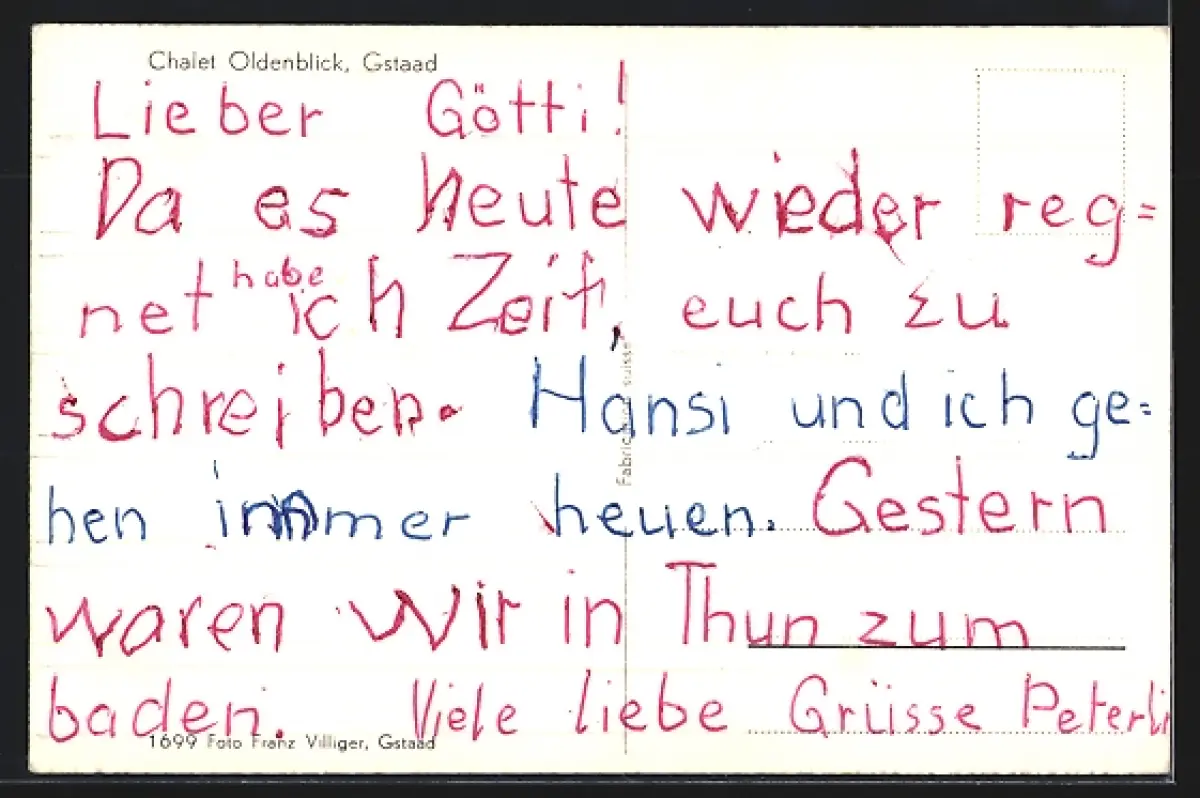 Chalet Oldenblick, Gstaad
Lieber Götti!
Da es heute wieder reg=
net habe ich Zeit, euch zu
schreiben. Hansi und ich ge=
hen immer heuen. Gestern
waren Wir in Thun zum
baden. Viele liebe Grüsse Peterli
1699 Foto Franz Villiger, Gstaad